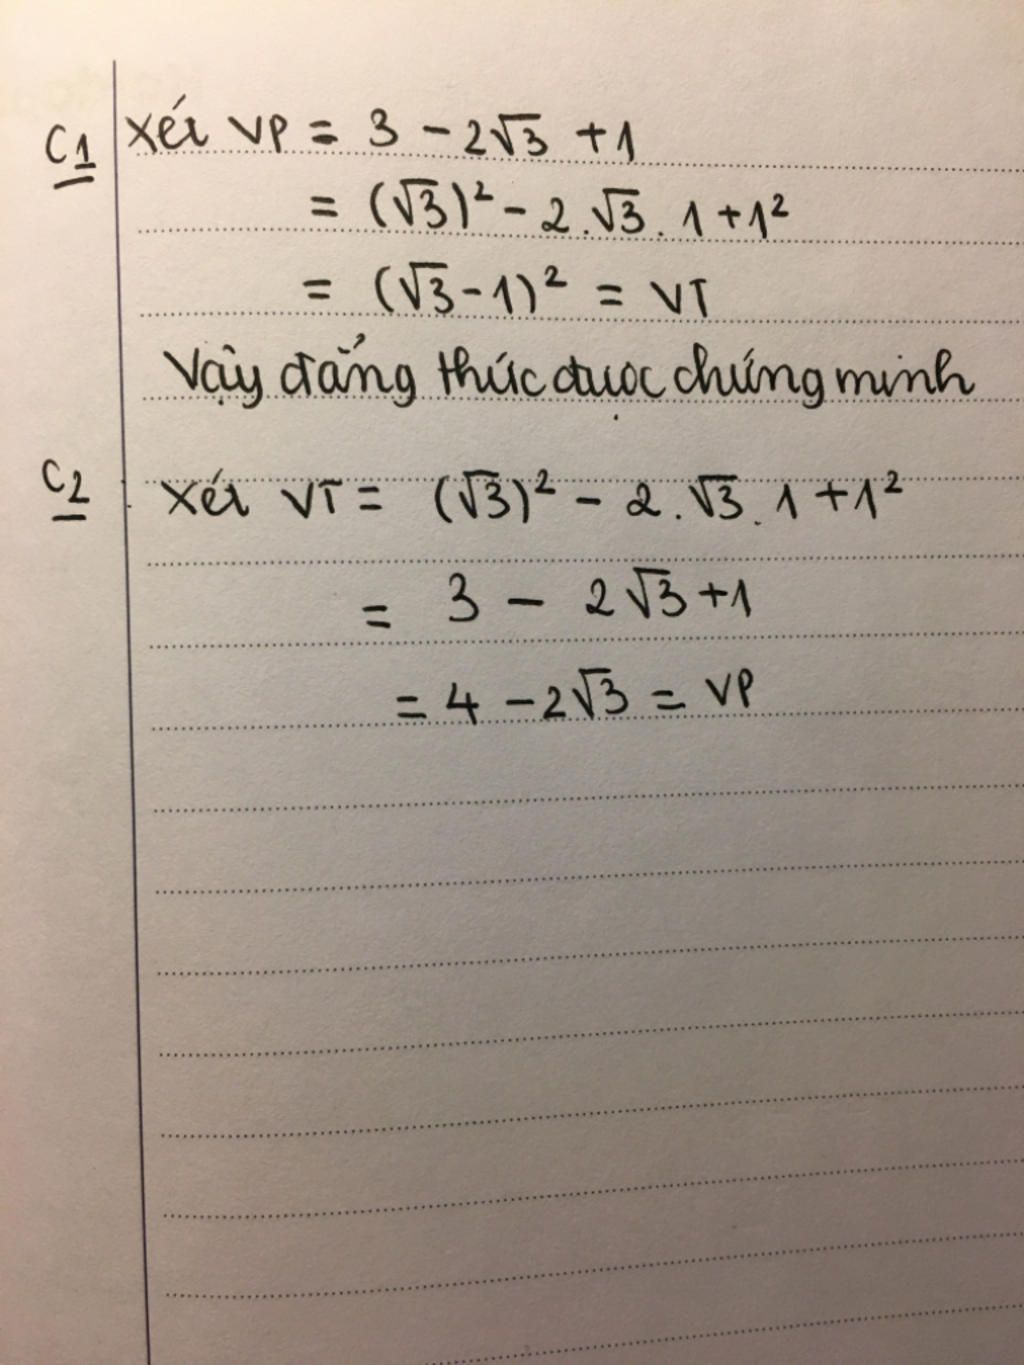 C1 Xét VP = 3 - 2√3 + 1
= (√3)² - 2.√3.1 + 1²
= (√3 - 1)² = VT
Vậy đẳng thức được chứng minh
C2 Xét VT = (√3)² - 2.√3.1 + 1²
= 3 - 2√3 + 1
= 4 - 2√3 = VP